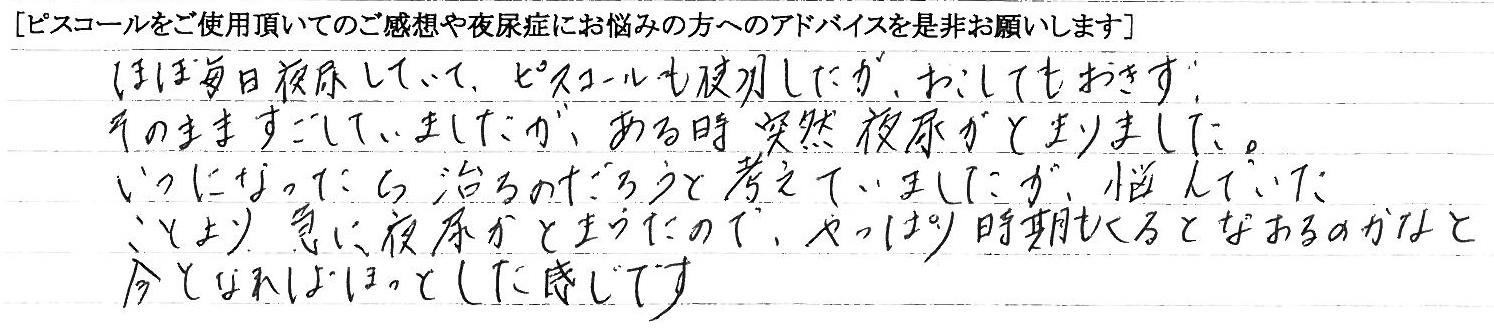 [ピスコールをご使用頂いてのご感想や夜尿症にお悩みの方へのアドバイスを是非お願いします]
ほぼ毎日夜尿していて、ピスコールも使用したが、おこしてもおきず、
そのますごしていましたが、ある時突然夜尿がとまりました。
いつになったら治るのだろうと考えていましたが、悩んでいた
ことより急に夜尿がとまったので、やっぱり時期もくるとなおるのかなと
今となればほっとした感じです